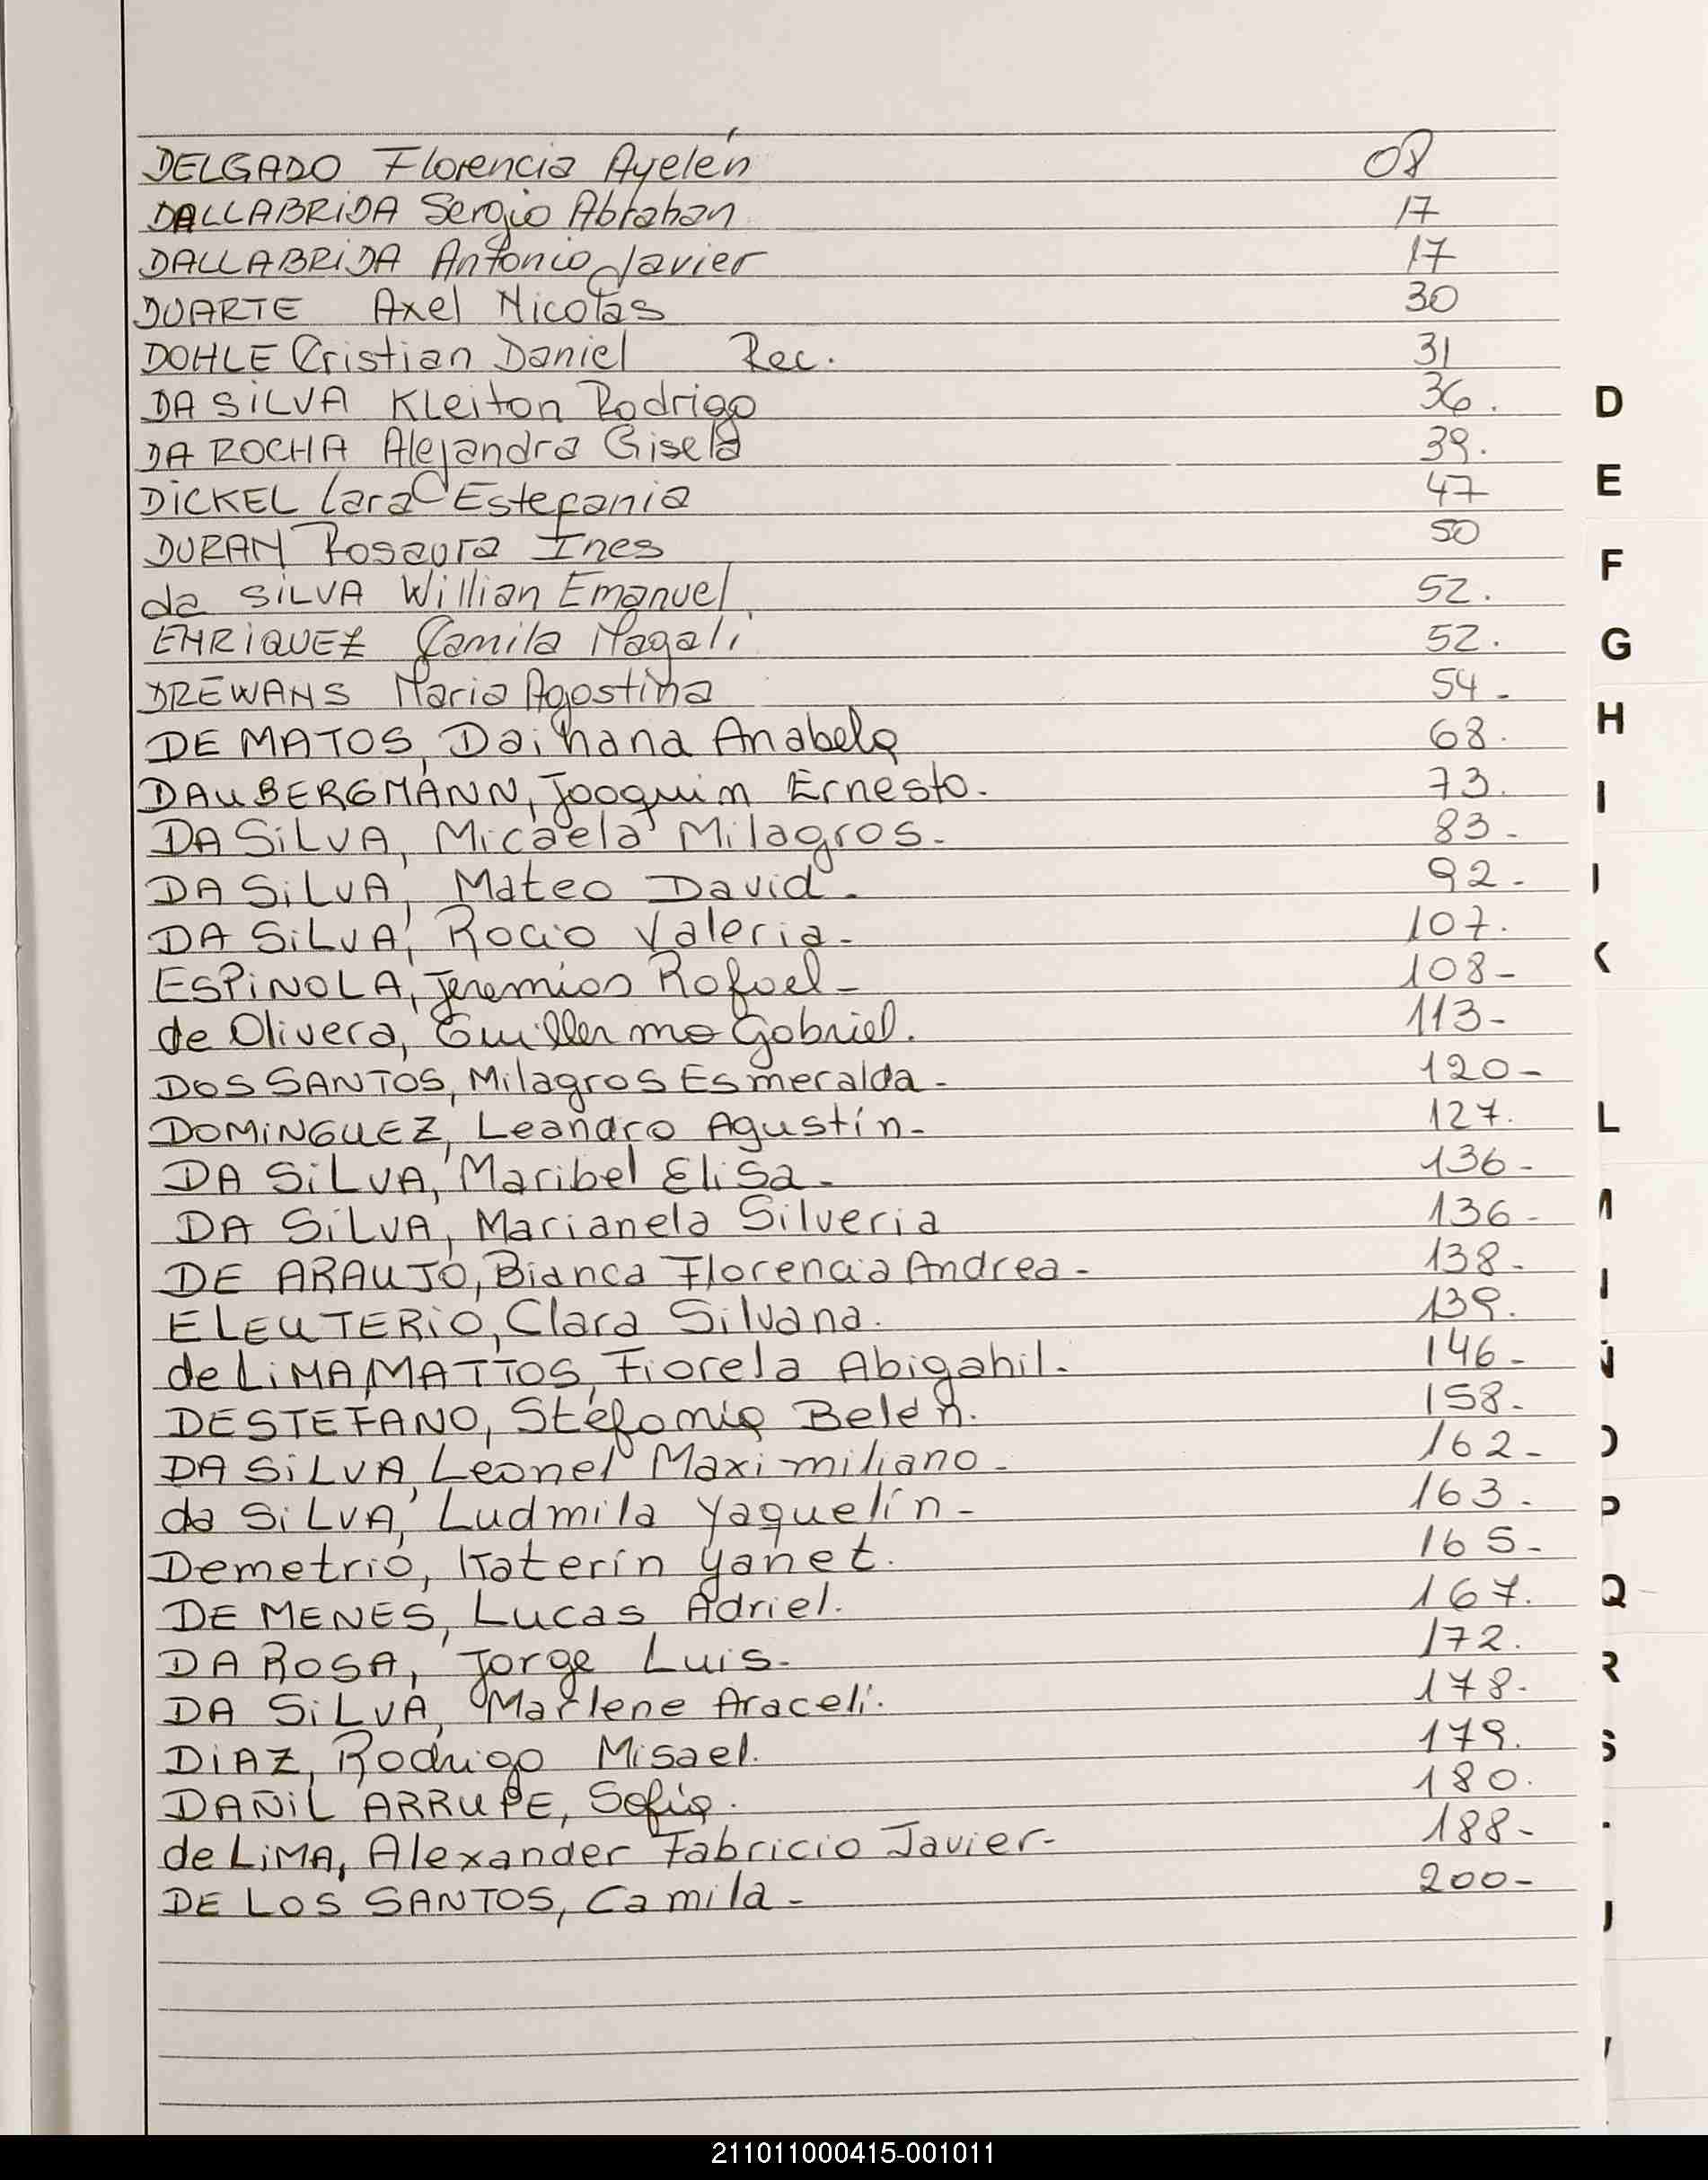 DELGADO Florencia Ayelén 08
DALLABRIDA Sergio Abrahan 17
DALLABRIDA Antonio Javier 17
DUARTE Axel Nicolas 30
DOHLE Cristian Daniel Rec. 31
DA SiLVA Kleiton Rodrigo 36.
DA ROCHA Alejandra Gisela 39.
DiCKEL Lara Estefania 47
DURAN Rosaura Ines 50
da SiLVA Willian Emanuel 52.
ENRiQUEZ Camila Magali 52.
DREWANS Maria Agostina 54-
DE MATOS, Daihana Anabela 68.
DAUBERGMANN, Joaquin Ernesto. 73.
DA SiLVA, Micaela Milagros. 83-
DA SiLVA, Mateo David. 92-
DA SiLVA, Rocio Valeria- 107.
ESPiNOLA, Jeremias Rafael- 108-
de Olivera, Guillermo Gabriel. 113-
DOS SANTOS, Milagros Esmeralda- 120-
DOMiNGUEZ, Leandro Agustín- 127.
DA SiLVA, Maribel Elisa- 136-
DA SiLVA, Marianela Silveria 136-
DE ARAUJO, Bianca Florencia Andrea- 138-
ELEUTERiO, Clara Silvana. 139.
de LiMA MATTOS, Fiorela Abigahil. 146-
DESTEFANO, Stéfania Belén. 158-
DA SiLVA, Leonel Maximiliano- 162-
da SiLVA, Ludmila Yaquelín- 163-
Demetrio, Katerin Yanet. 165-
DE MENES, Lucas Adriel. 167.
DA ROSA, Jorge Luis- 172.
DA SiLVA, Marlene Araceli. 178-
DiAZ, Rodrigo Misael. 179.
DAÑiL ARRUPE, Sofia. 180.
de LiMA, Alexander Fabricio Javier- 188-
DE LOS SANTOS, Camila- 200-
D
E
F
G
H
I
L
Q
R
S
211011000415-001011